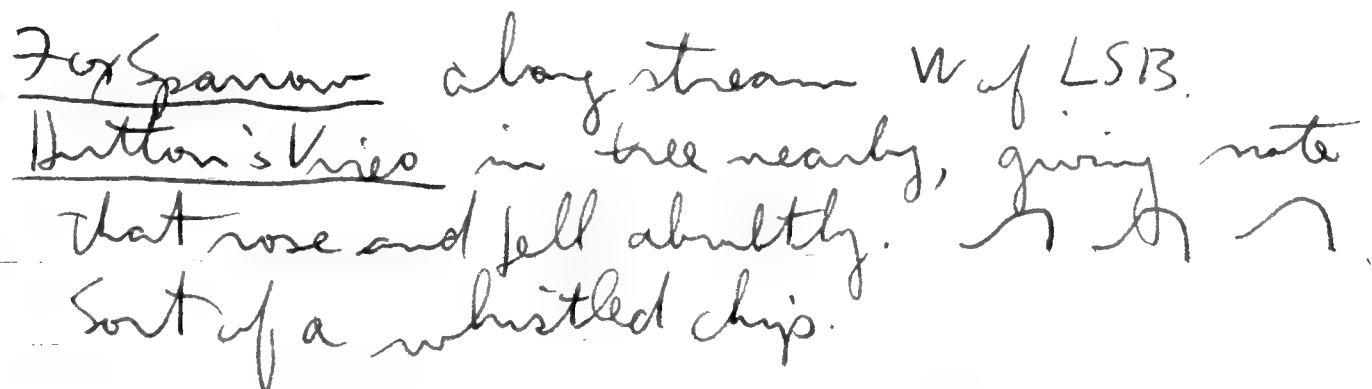 Fox Sparrow along stream W of LSB.
Hutton's Vireo in tree nearby, giving note
that rose and fell abruptly.
Sort of a whistled chip.